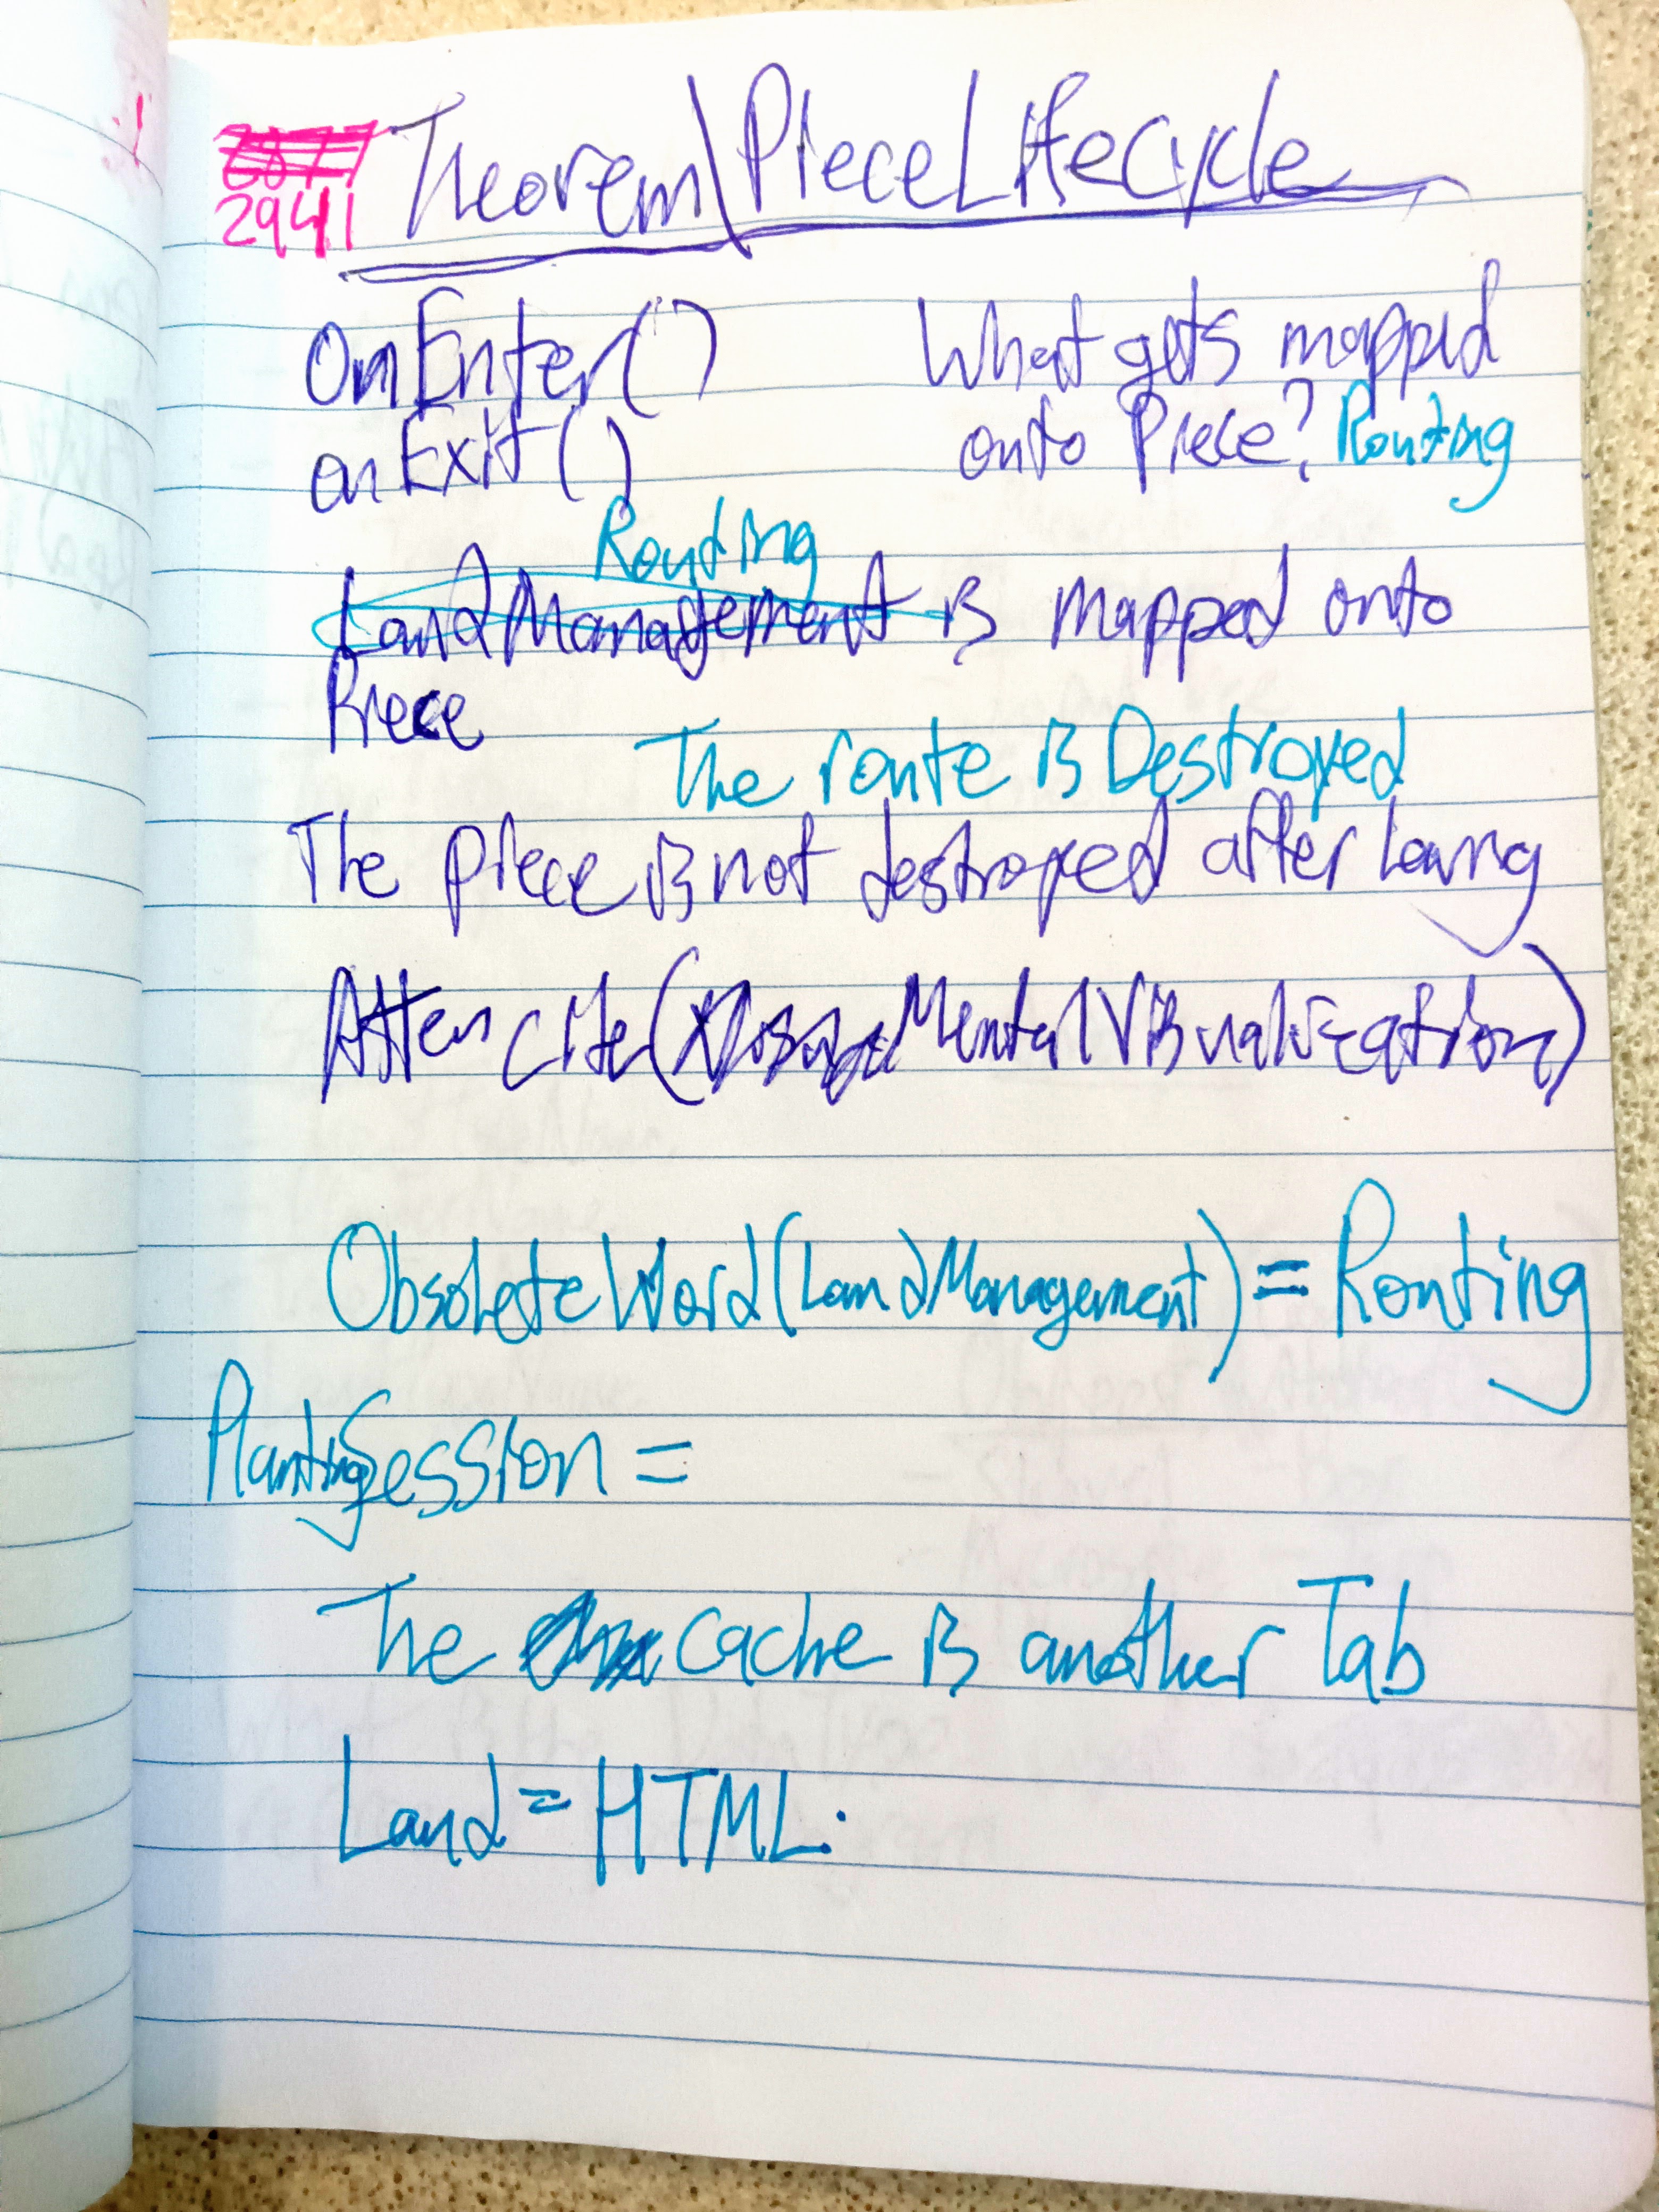 2941 Theorem\PieceLifeCycle
OnEnter() What gets mapped
onExit() onto Piece? Routing
Routing
LandManagement is mapped onto
Piece
The route is Destroyed
The piece is not destroyed after
(MentalVisualization)
ObsoleteWord(LandManagement) = Routing
PlantingSession =
The cache is another Tab
Land = HTML.